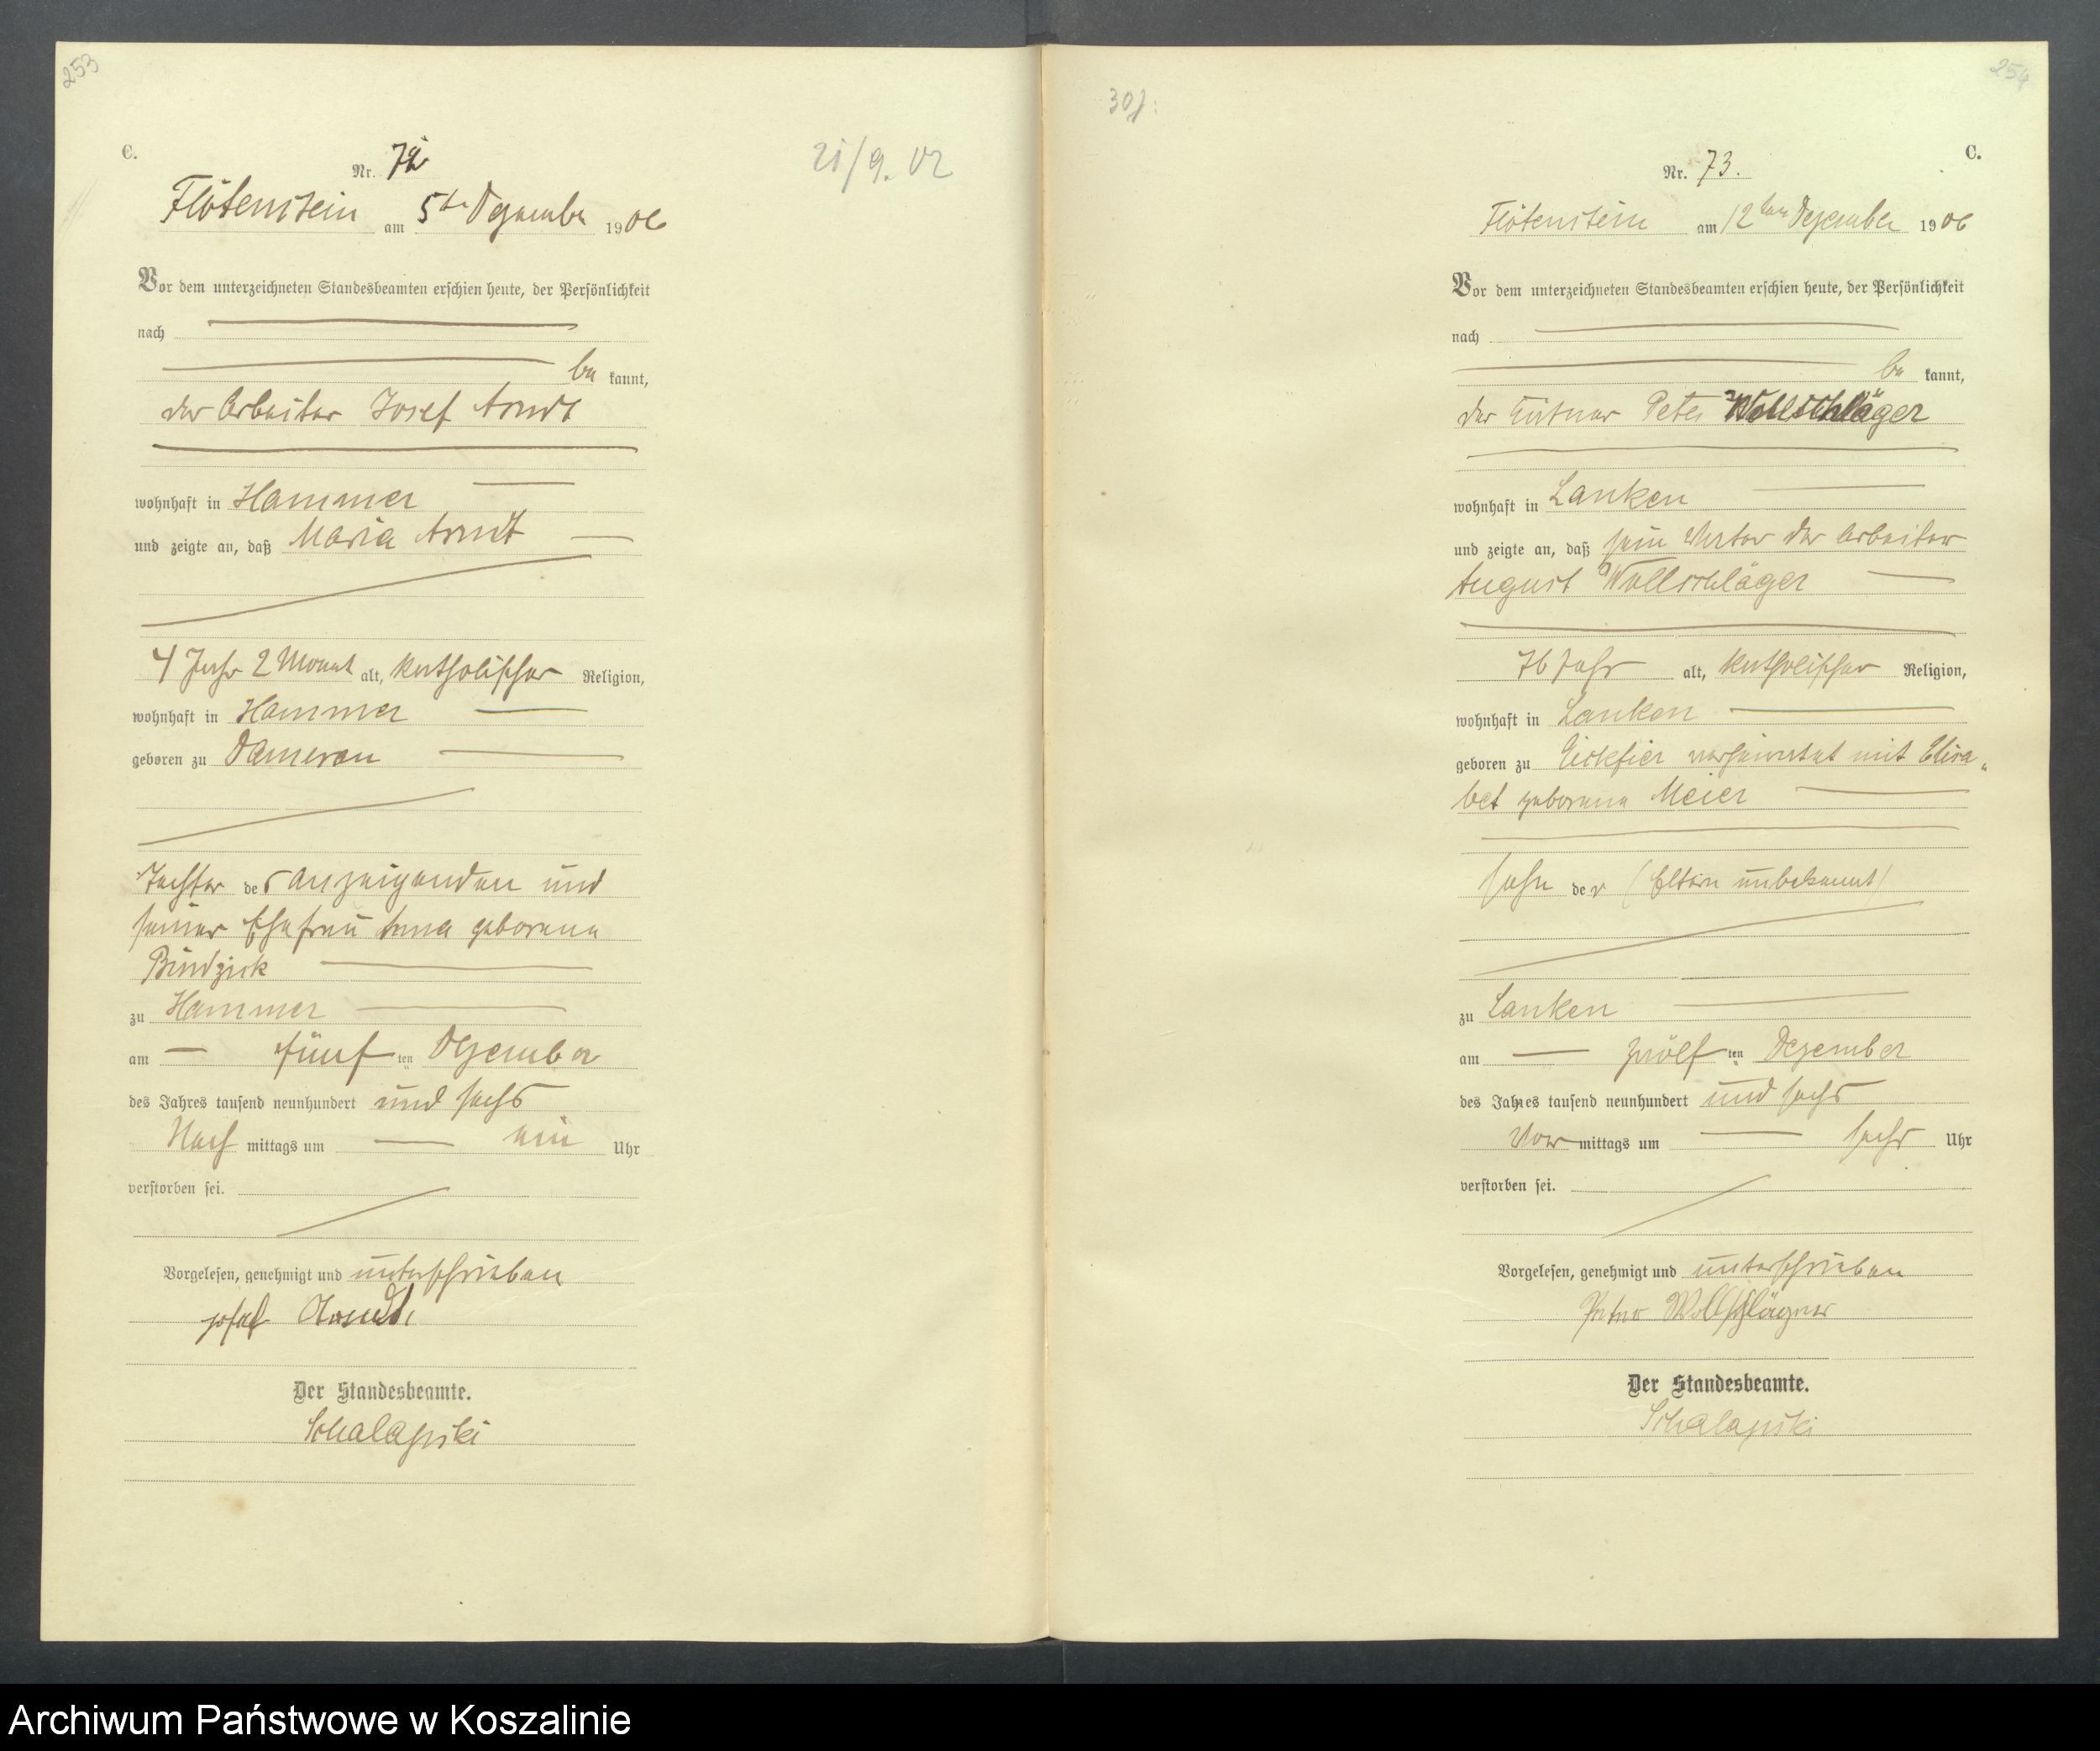 253
C.
21/9. 02
Nr. 72
Flötenstein am 5ten Dezember 1906
Vor dem unterzeichneten Standesbeamten erschien heute, der Persönlichkeit
nach
be kannt,
der Arbeiter Josef Arndt
wohnhaft in Hammer
und zeigte an, daß Maria Arndt
4 Jahr 2 Monat alt, katholischer Religion,
wohnhaft in Hammer
geboren zu Damerau
Tochter des Anzeigenden und
seiner Ehefrau Anna geborene
zu Hammer
am fünften Dezember
des Jahres tausend neunhundert und sechs
Nach mittags um ein Uhr
verstorben sei.
Vorgelesen, genehmigt und unterschrieben
Josef Arndt
Der Standesbeamte.
Schalapski
254
C.
Nr. 73.
Flötenstein am 12ten Dezember 1906
Vor dem unterzeichneten Standesbeamten erschien heute, der Persönlichkeit
nach
be kannt,
der Peter Wollschläger
wohnhaft in Lanken
und zeigte an, daß sein Vater der Arbeiter
August Wollschläger
76 Jahr alt, katholischer Religion,
wohnhaft in Lanken
geboren zu Eickfier verheiratet mit Elisa„
bet geborene Meier
Sohn der (Eltern unbekannt)
zu Lanken
am zwölften Dezember
des Jahres tausend neunhundert und sechs
Vor mittags um sechs Uhr
verstorben sei.
Vorgelesen, genehmigt und unterschrieben
Peter Wollschläger
Der Standesbeamte.
Schalapski
Archiwum Państwowe w Koszalinie